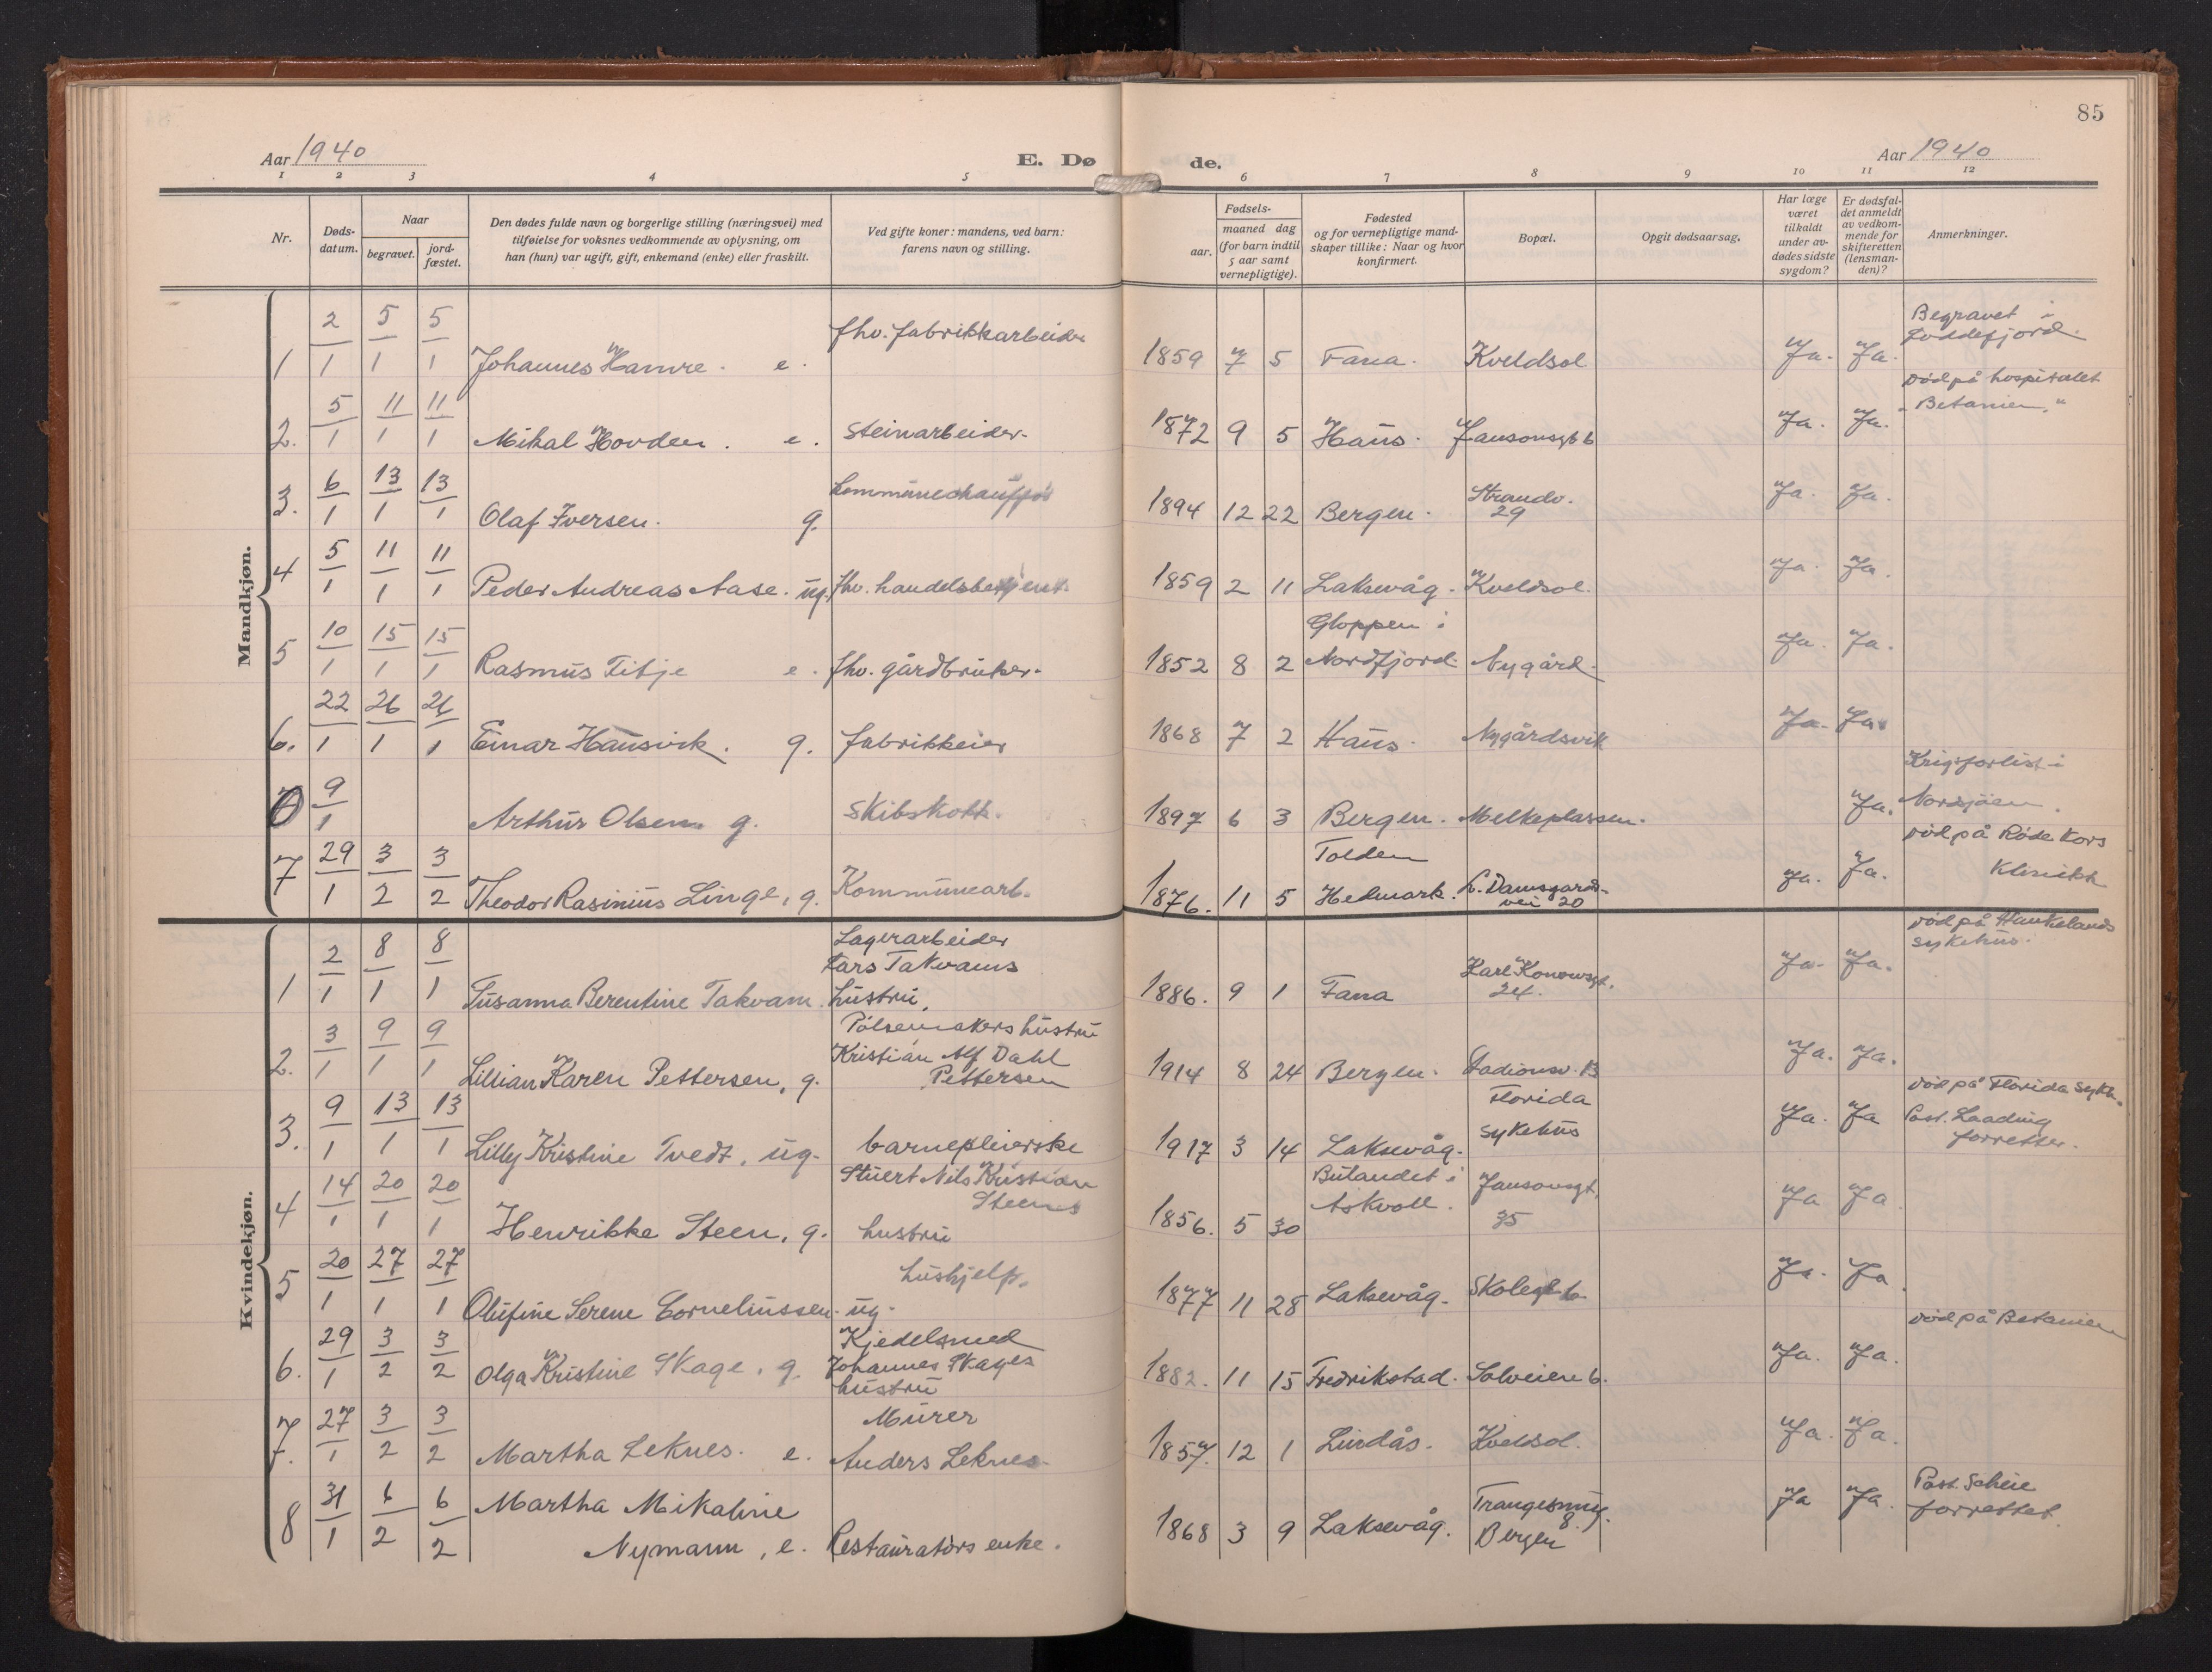 85
Aar 1940
E. Dø de.
Aar 1940
1 2 3 4 5 6 7 8 9 10 11 12
Nr.
Døds-
datum.
Naar
begravet.
jord-
fæstet.
Den dødes fulde navn og borgerlige stilling (næringsvei) med
tilføielse for voksnes vedkommende av oplysning, om
han (hun) var ugift, gift, enkemand (enke) eller fraskilt.
Ved gifte koner: mandens, ved barn:
farens navn og stilling.
Fødsels-
aar.
maaned dag
(for barn indtil
5 aar samt
vernepligtige).
Fødested
og for vernepligtige mand-
skaper tillike: Naar og hvor
konfirmert.
Bopæl.
Opgit dødsaarsag.
Har læge
været
tilkaldt
under av-
dødes sidste
sygdom?
Er dødsfal-
det anmeldt
av vedkom-
mende for
skifteretten
(lensman-
den)?
Anmerkninger.
Mandkjøn.
1 2/1 5/1 5/1 Johannes Hamre. e. fhv. fabrikkarbeider 1859 7 5 Fana. Kveldsol Ja. Ja. Begravet i
Loddefjord.
2. 5/1 11/1 11/1 Mikal Hovden. e. Steinarbeider. 1872 9 5 Haus. Jansonsgt 6 Ja. Ja. Død på hospitalet
"Betanien."
3. 6/1 13/1 13/1 Olaf Iversen. g. kommunechauffør 1894 12 22 Bergen. Strandv.
29 Ja. Ja.
4 5/1 11/1 11/1 Peder Andreas Aase. ug. fhv. handelsbetjent. 1859 2 11 Laksevåg. Kveldsol. Ja. Ja.
5 10/1 15/1 15/1 Rasmus Titje e. fhv. gårdbruker. 1852 8 2 Gloppen i
Nordfjord. Nygård. Ja. Ja.
6. 22/1 26/1 26/1 Einar Hausvik. g. fabrikkeier 1868 7 2 Haus. Nygårdsvik Ja. Ja.
0 9/1 Arthur Olsen g. Skibskokk. 1897 6 3 Bergen. Melkeplassen. Ja. Krigsforlist i
Nordsjøen.
7 29/1 3/2 3/2 Theodor Rasinius Linge, g. Kommunearb. 1876. 11 5 Tolden
Hedmark. L. Damsgårds-
vei 20 Ja. Ja. Død på Røde Kors
Klinikk
Kvindekjøn.
1 2/1 8/1 8/1 Susanna Berentine Takvam. Lagerarbeider
Lars Takvams
hustru. 1886. 9 1 Fana Karl Konowsgt.
24. Ja. Ja. Død på Haukelands
sykehus.
2. 3/1 9/1 9/1 Lillian Karen Pettersen, g. Pølsemakers hustru
Kristian Alf Dahl
Pettersen 1914 8 24 Bergen. Stadionsv. 13 Ja. Ja.
3. 9/1 13/1 13/1 Lilly Kristine Tvedt, ug. barnepleierske 1917 3 14 Laksevåg. Florida
sykehus Ja. Ja Død på Florida sykh.
Past. Laading
forretter.
4 14/1 20/1 20/1 Henrikke Steen, g. Stuert Nils Kristian
Steens
hustru 1856. 5 30 Bulandet i
Askvoll. Jansonsgt.
35 Ja Ja
5 20/1 27/1 27/1 Olufine Serene Corneliussen. ug. hushjelp. 1877 11 28 Laksevåg. Skolegt 6 Ja. Ja.
6. 29/1 3/2 3/2 Olga Kristine Skage, g. Kjedelsmed
Johannes Skages
hustru 1882. 11 15 Fredrikstad. Solveien 6. Ja. Ja. Død på Betanien
7. 27/1 3/2 3/2 Martha Leknes. e. Murer
Anders Leknes. 1857. 12 1 Lindås. Kveldsol. Ja. Ja.
8 31/1 6/2 6/2 Martha Mikaline
Nymann, e. Restauratørs enke. 1868 3 9 Laksevåg. 8.
Bergen Ja Ja. Past. Scheie
forrettet.